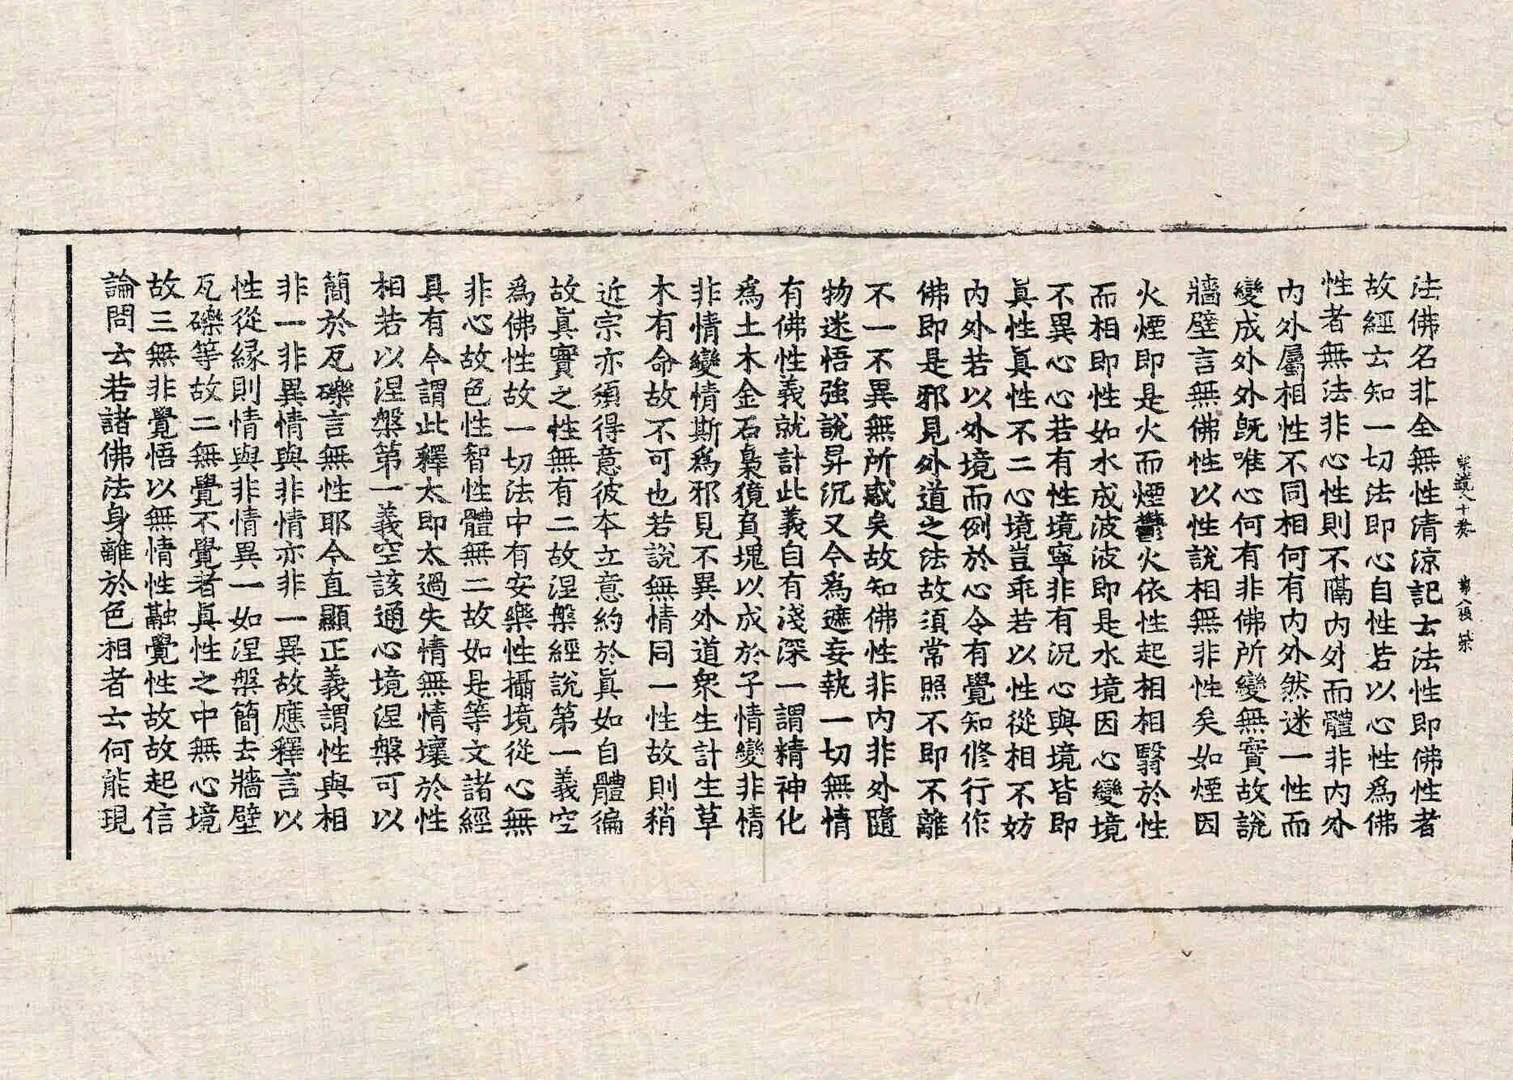 法佛名非全無性清涼記云法性即佛性者
故經云知一切法即心自性若以心性爲佛
性者無法非心性則不隔內外而體非內外
內外屬相性不同相何有內外然迷一性而
變成外外旣唯心何有非佛所變無實故說
牆壁言無佛性以性說相無非性矣如煙因
火煙即是火而煙鬱火依性起相相翳於性
而相即性如水成波波即是水境因心變境
不異心心若有性境寧非有況心與境皆即
眞性眞性不二心境豈乖若以性從相不妨
內外若以外境而例於心令有覺知修行作
佛即是邪見外道之法故須常照不即不離
不一不異無所惑矣故知佛性非內非外隨
物迷悟強說昇沉又令爲遮妄執一切無情
有佛性義就計此義自有淺深一謂精神化
爲土木金石梟獍負塊以成於子情變非情
非情變情斯爲邪見不異外道衆生計生草
木有命故不可也若說無情同一性故則稍
近宗亦須得意彼本立意約於眞如自體徧
故眞實之性無有二故涅槃經說第一義空
爲佛性故一切法中有安樂性攝境從心無
非心故色性智性體無二故如是等文諸經
具有今謂此釋太即太過失情無情壞於性
相若以涅槃第一義空該通心境涅槃可以
簡於瓦礫言無性耶今直顯正義謂性與相
非一非異情與非情亦非一異故應釋言以
性從緣則情與非情異一如涅槃簡去牆壁
瓦礫等故二無覺不覺者眞性之中無心境
故三無非覺悟以無情性融覺性故故起信
論問去若諸佛法身離於色相者云何能現